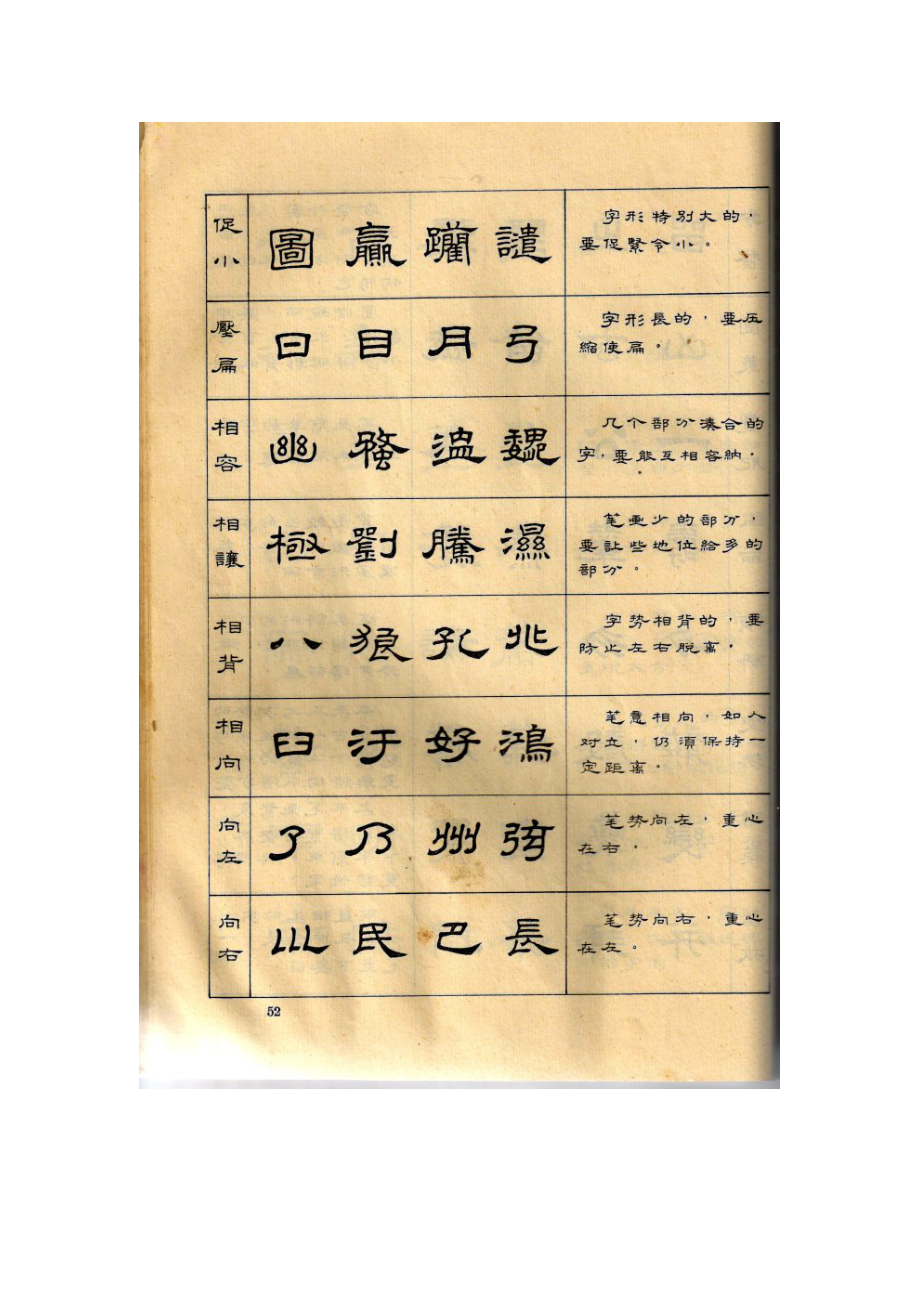 促小
圖 贏 躪 譴
字形特别大的，
要促緊令小。
壓扁
曰 目 月 弓
字形長的，要压
縮使扁。
相容
幽 蝥 温 魏
几个部分湊合的
字，要能互相容納。
相讓
極 劉 騰 濕
笔画少的部分，
要让些地位給多的
部分。
相背
八 狼 孔 兆
字势相背的，要
防止左右脫离。
相向
臼 汙 好 鴻
笔意相向，如人
对立，仍須保持一
定距离。
向左
了 乃 州 弦
笔势向左，重心
在右，
向右
巛 民 巴 長
笔势向右，重心
在左。
52